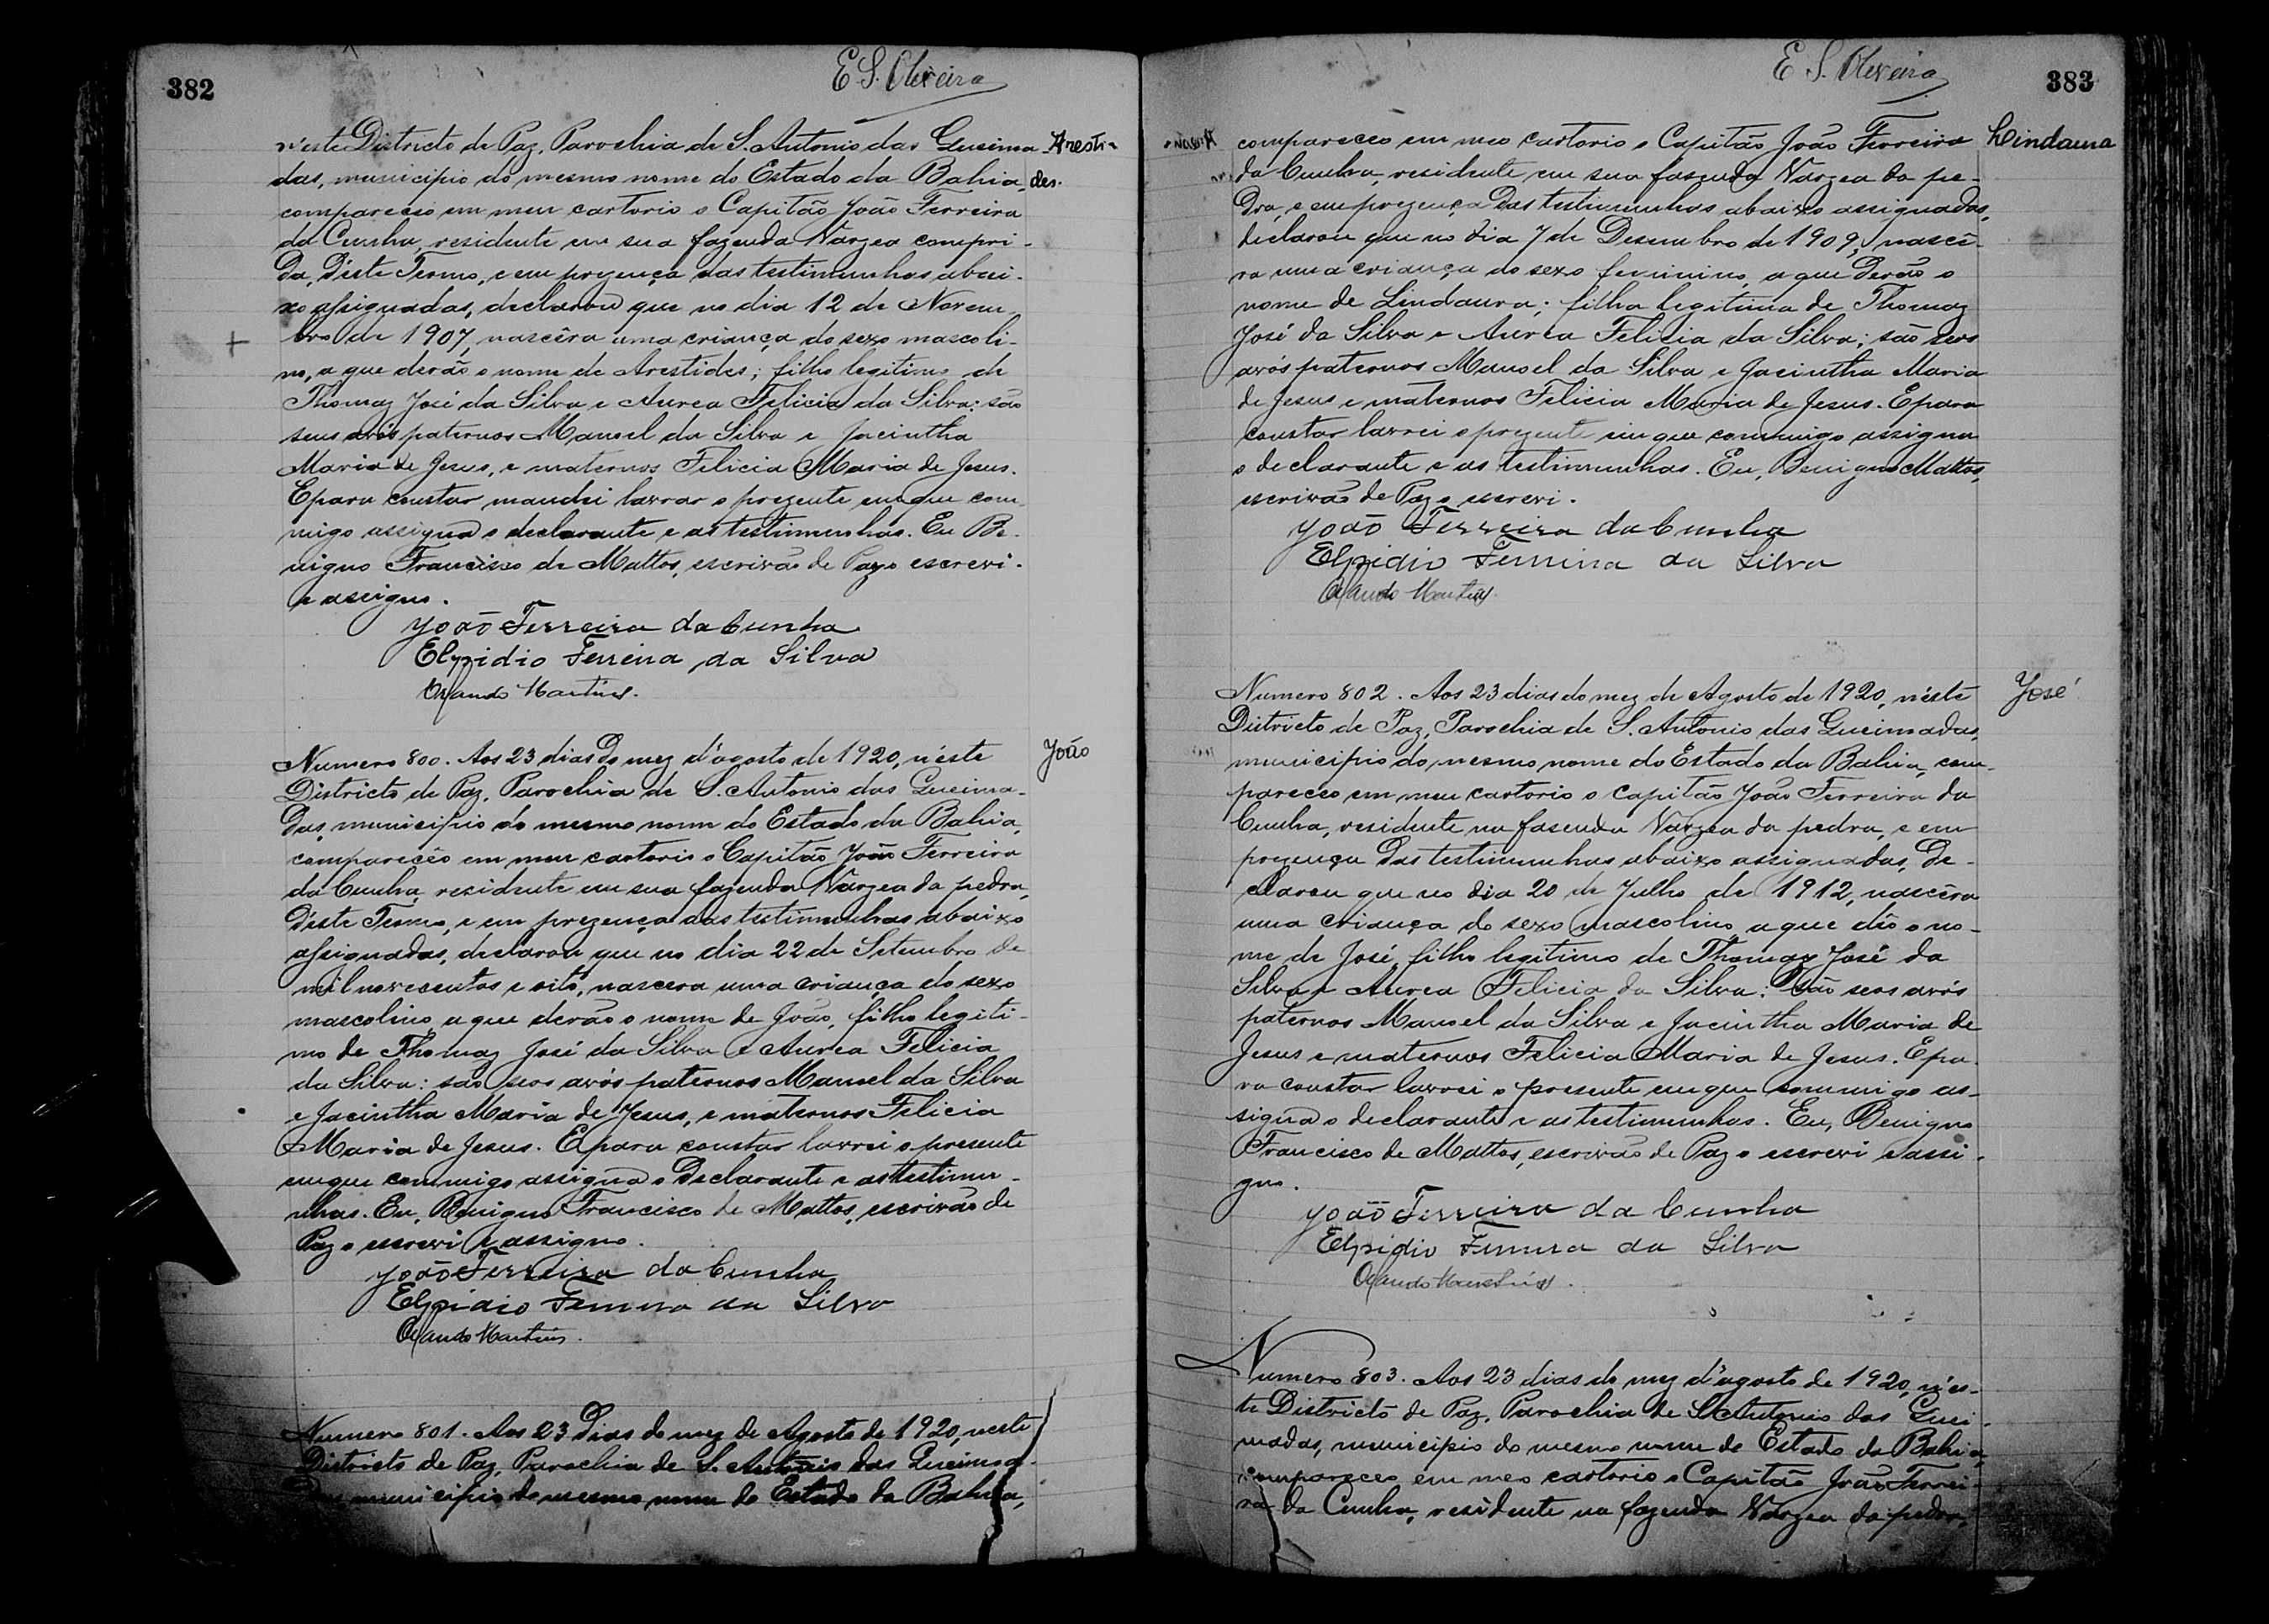 382
E. S. Oliveira
n'este Districto de Paz, Parochia de S. Antonio das Queima
Aresti-
das, municipio do mesmo nome do Estado da Bahia,
des.
compareceo em meu cartorio o Capitão João Ferreira
da Cunha, residente em sua fazenda Vargea compri-
da, d'este Termo, e em prezença das testimunhas abai-
xo assignadas, declarou que no dia 12 de Novem
bro de 1907, nascêra uma criança do sexo mascoli-
no, a que derão o nome de Arestides; filho legitimo de
Thomaz José da Silva e Aurea Felicia da Silva: são
seus avós paternos Manoel da Silva e Jacintha
Maria de Jesus, e maternos Felicia Maria de Jesus.
E para constar mandei lavrar o prezente em que com
migo assigna o declarante e as testimunhas. Eu Be-
nigno Francisco de Mattos, escrivão de Paz o escrevi
e assigno.
João Ferreira da Cunha
Elpidio Ferreira da Silva
Orlando Martins.
Numero 800. Aos 23 dias do mez d'agosto de 1920, n'éste
João
Districto de Paz, Parochia de S. Antonio das Queima-
das, municipio do mesmo nome do Estado da Bahia,
compareceo em meu cartorio o Capitão João Ferreira
da Cunha, residente em sua fazenda Vargea da pedra,
d'éste Termo, e em prezença das testimunhas abaixo
assignadas, declarou que no dia 22 de Setembro de
mil novecentos e oito, nascera uma criança do sexo
mascolino, a que derão o nome de João, filho legiti-
mo de Thomaz José da Silva e Aurea Felicia
da Silva: são seos avós paternos Manoel da Silva
e Jacintha Maria de Jesus, e maternos Felicia
Maria de Jesus. E para constar lavrei o presente
em que commigo assigna o declarante e as testimu-
nhas. Eu, Benigno Francisco de Mattos, escrivão de
Paz o escrevi e assigno.
João Ferreira da Cunha
Elpidio Ferreira da Silva
Orlando Martins.
Numero 801. Aos 23 dias do mez de Agosto de 1920, neste
Districto de Paz, Parochia de S. Antonio das Queima-
das, municipio do mesmo nome do Estado da Bahia,
E. S. Oliveira
383
compareceo em meo cartorio o Capitão João Ferreira
Lindaura
da Cunha, residente em sua fasenda Vargea da pe-
dra, e em prezença das testimunhas abaixo assignadas,
declarou que no dia 7 de Desembro de 1909, nascê-
ra uma criança do sexo feminino, a que derão o
nome de Lindaura; filha legitima de Thomaz
José da Silva e Aurea Felicia da Silva; são seos
avós paternos Manoel da Silva e Jacintha Maria
de Jesus e maternos Felicia Maria de Jesus. E para
constar lavrei o prezente em que commigo assigna
o declarante e as testimunhas. Eu, Benigno Mattos,
escrivão de Paz o escrevi.
João Ferreira da Cunha
Elpidio Ferreira da Silva
Orlando Martins
Numero 802. Aos 23 dias do mez de Agosto de 1920, n'éste
José
Districto de Paz, Parochia de S. Antonio das Queimadas,
municipio do mesmo nome do Estado da Bahia, com-
pareceo em meu cartorio o Capitão João Ferreira da
Cunha, residente na fasenda Vargea da pedra, e em
prezença das testimunhas abaixo assignadas, de-
clarou que no dia 20 de Julho de 1912, nascêra
uma criança do sexo mascolino, a que dêo o no-
me de José, filho legitimo de Thomaz José da
Silva e Aurea Felicia da Silva: são seos avós
paternos Manoel da Silva e Jacintha Maria de
Jesus e maternos Felicia Maria de Jesus. E pa-
ra constar lavrei o presente em que commigo as-
signa o declarante e as testimunhas. Eu, Benigno
Francisco de Mattos, escrivão de Paz o escrevi e assi-
gno.
João Ferreira da Cunha
Elpidio Ferreira da Silva
Orlando Martins.
Numero 803. Aos 23 dias do mez d'agosto de 1920, n'és-
te Districto de Paz, Parochia de S. Antonio das Quei-
madas, municipio do mesmo nome do Estado da Bahia,
compareceo em meo cartorio o Capitão João Ferrei-
ra da Cunha, residente na fazenda Vargea da pedra,